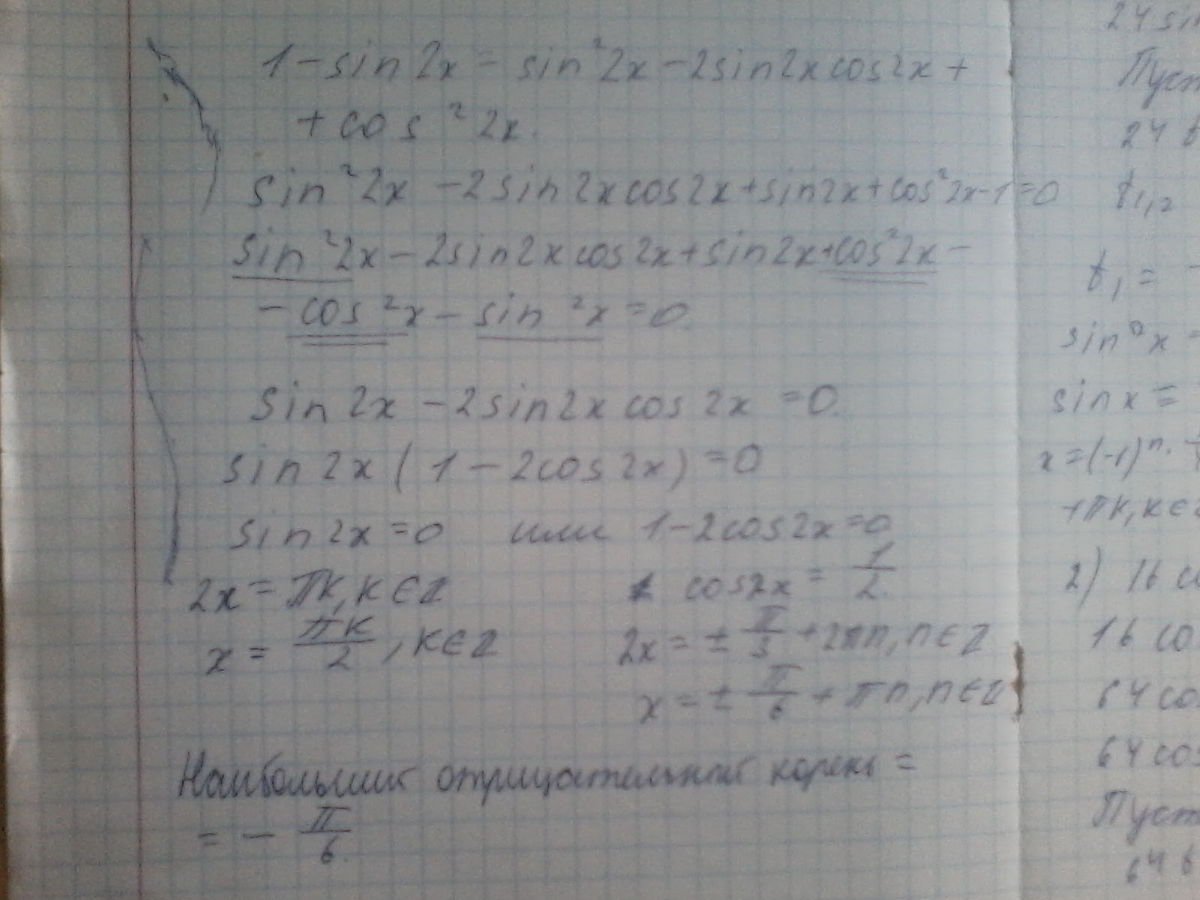 1 - sin 2x = sin²2x - 2sin2x cos2x +
+ cos²2x.
sin²2x - 2sin2x cos2x + sin2x + cos²2x - 1 = 0
sin²2x - 2sin2x cos2x + sin2x + cos²2x -
- cos²x - sin²x = 0.
sin 2x - 2sin2x cos 2x = 0.
sin 2x (1 - 2cos2x) = 0
sin 2x = 0 или 1 - 2cos2x = 0
2x = πk, k ∈ Z cos2x = 1/2.
x = πk/2, k ∈ Z 2x = ± π/3 + 2πn, n ∈ Z
x = ± π/6 + πn, n ∈ Z
Наибольший отрицательный корень =
= - π/6.
24 sin
Пуст
24 t
t₁,₂
t₁ =
sin x =
x = (-1)ⁿ ·
+πk, k ∈ Z
2) 16 co
16 co
64 cos
64 cos
Пуст
64 t